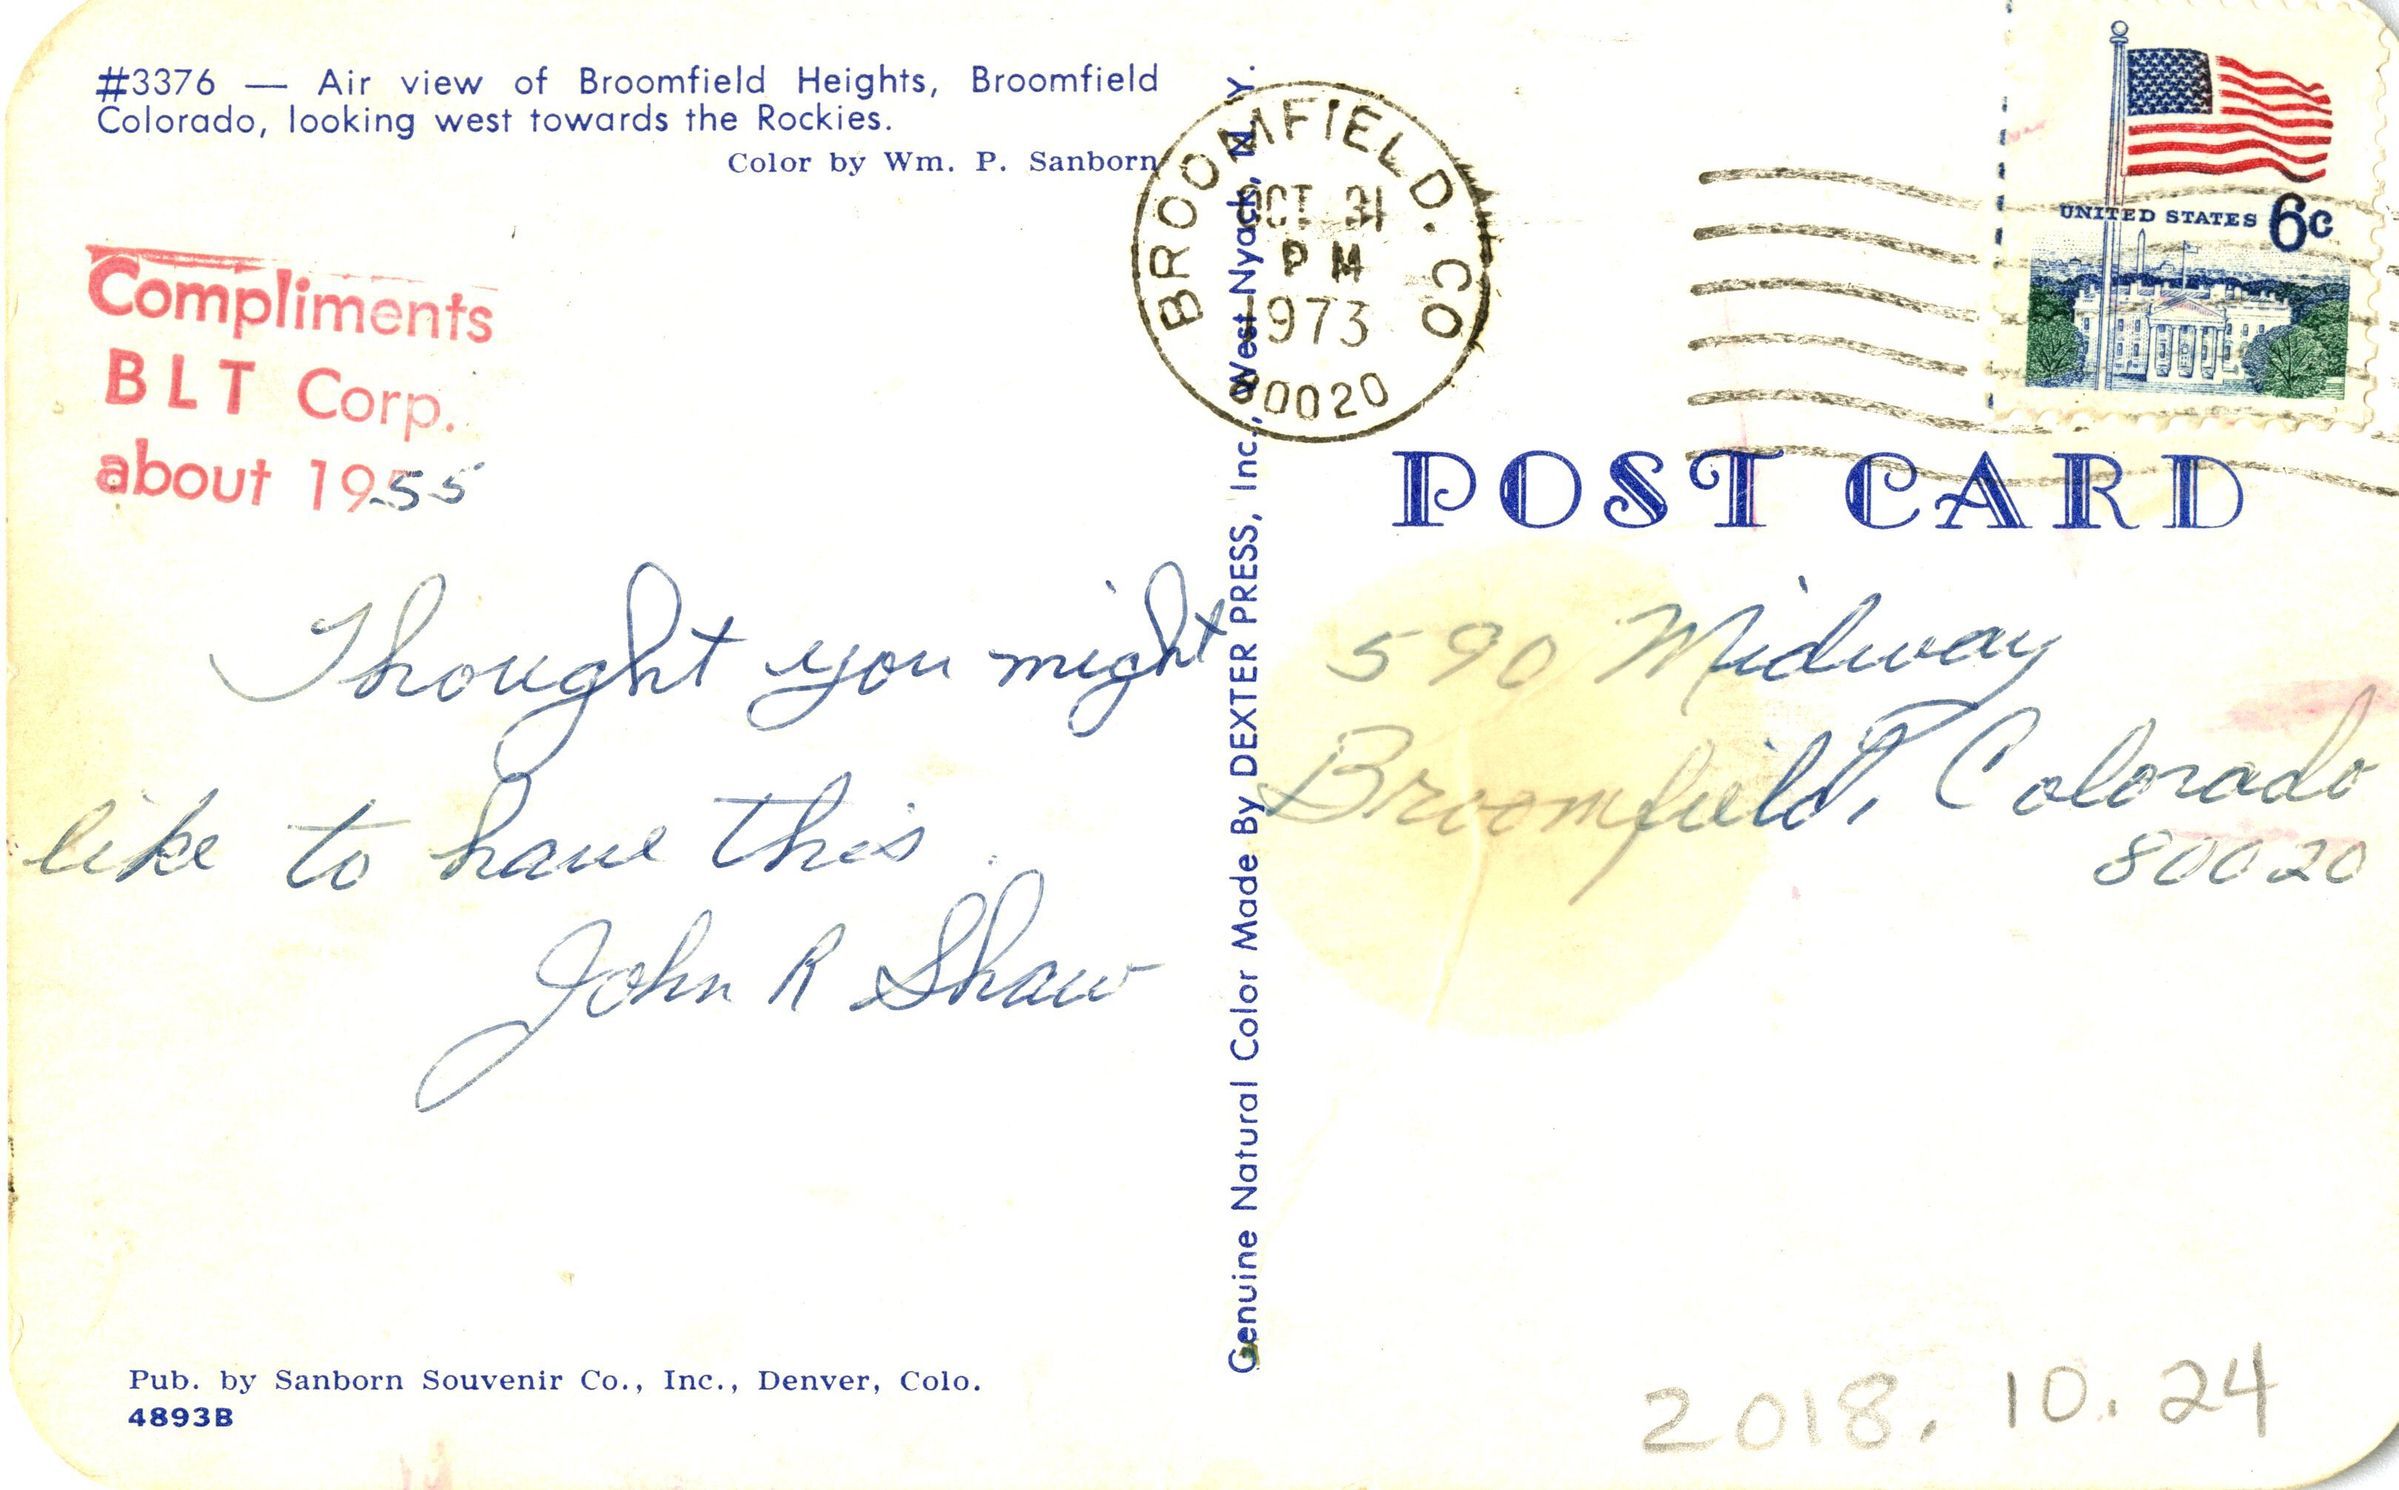 #3376 — Air view of Broomfield Heights, Broomfield
Colorado, looking west towards the Rockies.
Color by Wm. P. Sanborn
Compliments
BLT Corp.
about 1955
Thought you might
like to have this.
John R Shaw
Pub. by Sanborn Souvenir Co., Inc., Denver, Colo.
4893B
Genuine Natural Color Made By DEXTER PRESS, Inc., West Nyack, N. Y.
BROOMFIELD. CO
OCT 31
PM
1973
80020
UNITED STATES 6c
POST CARD
590 Midway
Broomfield, Colorado
80020
2018. 10. 24